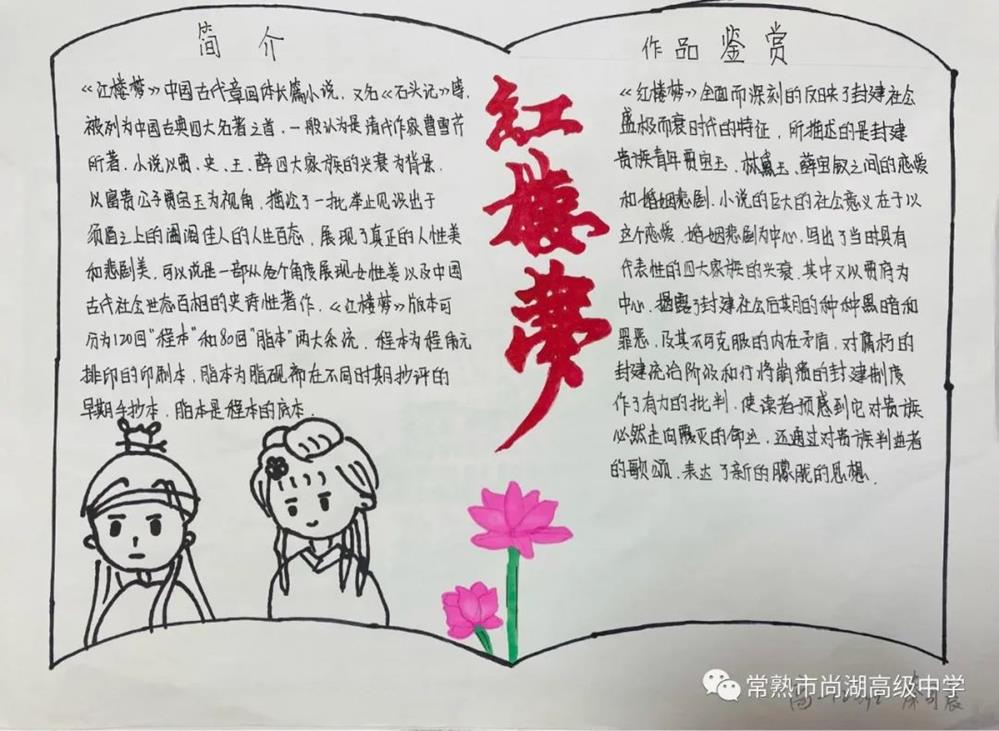 简介
《红楼梦》中国古代章回体长篇小说，又名《石头记》等，
被列为中国古典四大名著之首，一般认为是清代作家曹雪芹
所著。小说以贾、史、王、薛四大家族的兴衰为背景，
以富贵公子贾宝玉为视角，描绘了一批举止见识出于
须眉之上的闺阁佳人的人生百态，展现了真正的人性美
和悲剧美，可以说是一部从各个角度展现女性美以及中国
古代社会世态百相的史诗性著作。《红楼梦》版本可
分为120回“程本”和80回“脂本”两大系统，程本为程伟元
排印的印刷本，脂本为脂砚斋在不同时期抄评的
早期手抄本。脂本是程本的底本。
红楼梦
作品鉴赏
《红楼梦》全面而深刻的反映了封建社会
盛极而衰时代的特征，所描述的是封建
贵族青年贾宝玉、林黛玉、薛宝钗之间的恋爱
和婚姻悲剧，小说的巨大的社会意义在于以
这个恋爱、婚姻悲剧为中心，写出了当时具有
代表性的四大家族的兴衰，其中又以贾府为
中心，揭露了封建社会后其月的种种黑暗和
罪恶，及其不可克服的内在矛盾，对腐朽的
封建统治阶级和行将崩溃的封建制度
作了有力的批判，使读者预感到它对贵族
必然走向覆灭的命运，还通过对贵族判益者
的歌颂，表达了新的朦胧的思想。
常熟市尚湖高级中学